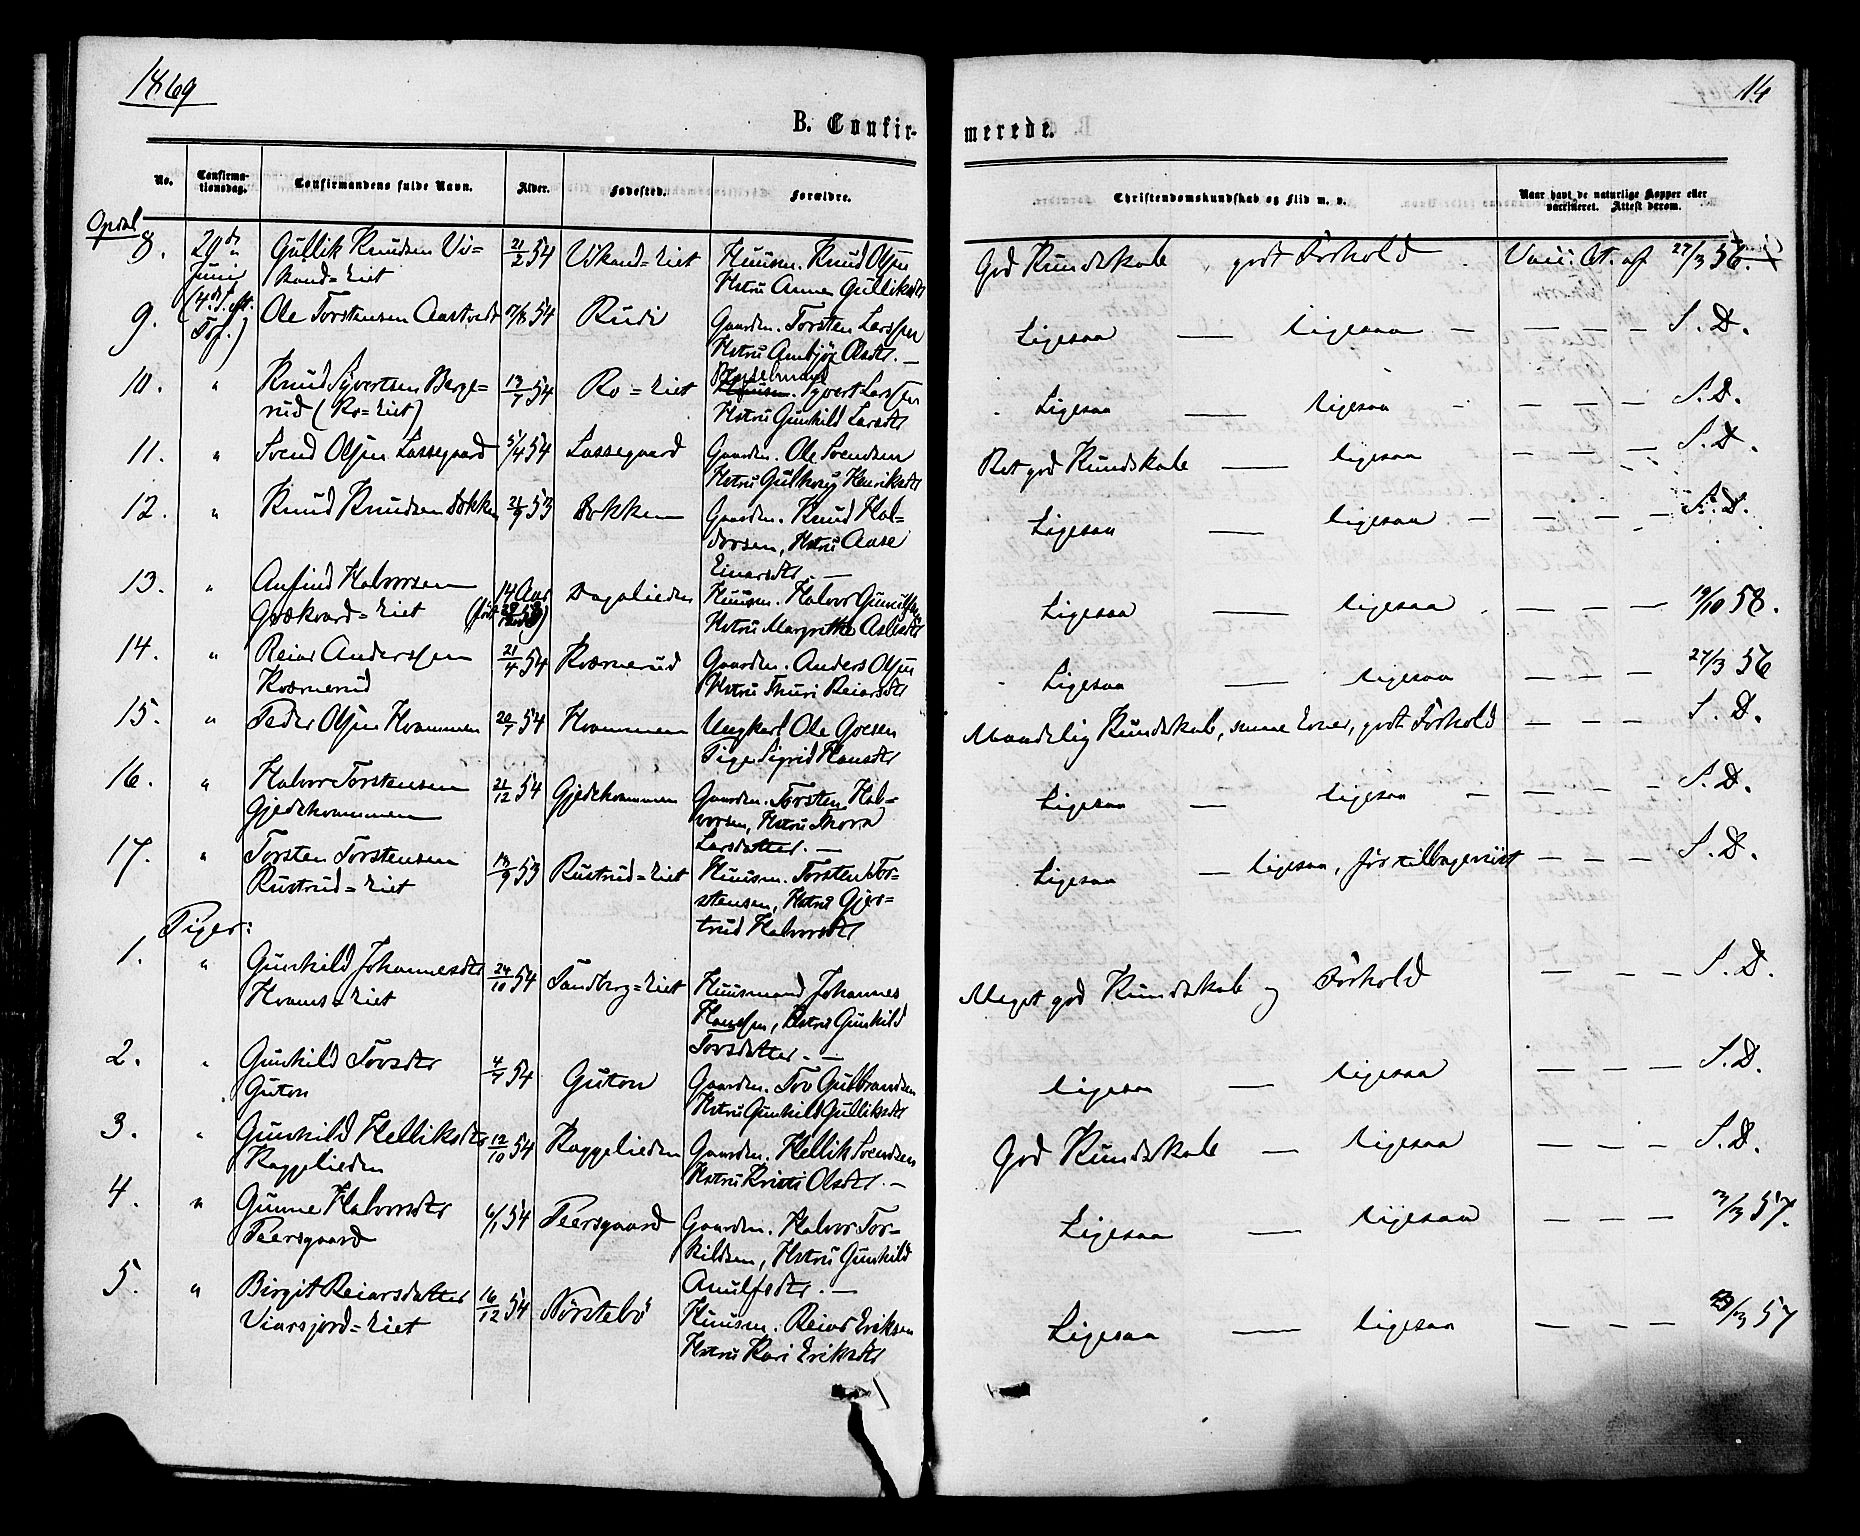 1869
14
B. Confirmerede.
No.
Confirmationsdag.
Confirmandens fulde Navn.
Alder.
Fødested.
Forældre.
Christendomskundskab og Flid m. v.
Naar havt de naturlige Kopper eller vaccineret. Attest derom.
Opdal
8. 20de Juni (4de S. eft. Tref.)
Gullik Knudsen Vikand=Eiet
21/2 54
Vikand=Eiet
Huusm. Knud Olsen
Hstru Anne Gulliksdtr
God Kundskab godt Forhold
Vacc. At. af 27/3 56.
9.
Ole Torstensen Aastvedt
17/8 54
Rudi
Gaardm. Torsten Larssen
Hstru Ambjør Olsdtr. —
Ligesaa — ligesaa — — — — S. D.
10. "
Knud Syvertsen Bergerud (Ro=Eiet)
13/7 54
Ro=Eiet
Huusm. Syvert Larssen
Hstru Gunhild Larsdtr
Ligesaa — ligesaa — — — — S. D.
11. "
Svend Olsen Lassegaard
5/4 54
Lassegaard
Gaardm. Ole Svendsen
Hstru Gulborg Henriksdtr
Ret god Kundskab — ligesaa — — — S. D.
12. "
Knud Knudsen Dokken
21/9 53
Dokken
Gaardm. Knud Haldorsen, Hstru Aase
Einarsdtr. —
Ligesaa — ligesaa — — — — S. D.
13. "
Anfind Halvorsen
Grækvard=Eiet
14 Aar
Dagalieden
Huusm. Halvor
Hstru Margrethe Aslesdtr
Ligesaa — ligesaa — — — 19/10 58.
14. "
Reiar Anderssen
Kværnerud
21/4 54
Kværnerud
Gaardm. Anders Olsen
Hstru Thuri Reiarsdtr
Ligesaa — ligesaa — — — 27/3 56
15. "
Peder Olsen Hvammen
20/7 54
Hvammen
Ungkarl Ole Goesen
Pige Sigrid Hansdtr
Maadelig Kundskab, smaae Evner, godt Forhold — — — S. D.
16. "
Halvor Torstensen
Gjedehvammen
21/12 54
Gjedehvammen
Gaardm. Torsten Halvorsen, Hstru Thora
Larsdatter. —
Ligesaa — ligesaa — — — — S. D.
17. "
Torsten Torstensen
Rustrud=Eiet
13/9 53
Rustrud=Eiet
Huusm. Torsten Torstensen, Hstru Gjertrud Halvorsdtr
Ligesaa — ligesaa, før tilbageviist — — — S. D.
Piger:
1. "
Gunhild Johannesdtr
Hvams=Eiet
24/10 54
Sandberg=Eiet
Huusmand Johannes
Hanssen, Hstru Gunhild
Torsdatter. —
Meget god Kundskab og Forhold — — — S. D.
2. "
Gunhild Tovsdtr
Guton
4/7 54
Guton
Gaardm. Tov Gulbrandsen
Hstru Gunhild Gulliksdtr
ligesaa — ligesaa — — — S. D.
3. "
Gunhild Helliksdtr
Raggelieden
12/10 54
Raggelieden
Gaardm. Hellik Svendsen
Hstru Kristi Olsdtr. —
God Kundskab — ligesaa — — — S. D.
4. "
Gunne Halvorsdtr
Peersgaard
6/1 54
Peersgaard
Gaardm. Halvor Torkildsen, Hstru Gunhild
Anulfsdtr. —
Ligesaa — ligesaa — — — 3/3 57.
5. "
Birgit Reiarsdatter
Viersjord=Eiet
16/12 54
Nørstebø
Huusm. Reiar Eriksen
Hstru Kari Eriksdtr
Ligesaa — ligesaa — — — /3 57